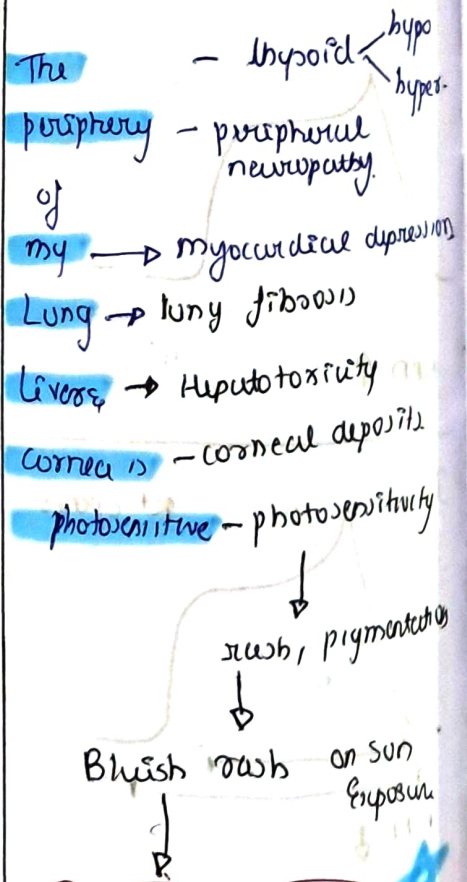 The - thyroid hypo
hyper.
periphery - peripheral
neuropathy.
of
my → myocardial depression
Lung → lung fibrosis
Livers & → Hepatotoxicity
cornea is - corneal deposits
photosensitive - photosensitivity
↓
rash, pigmentation
↓
Bluish rash on sun
Exposure
↓